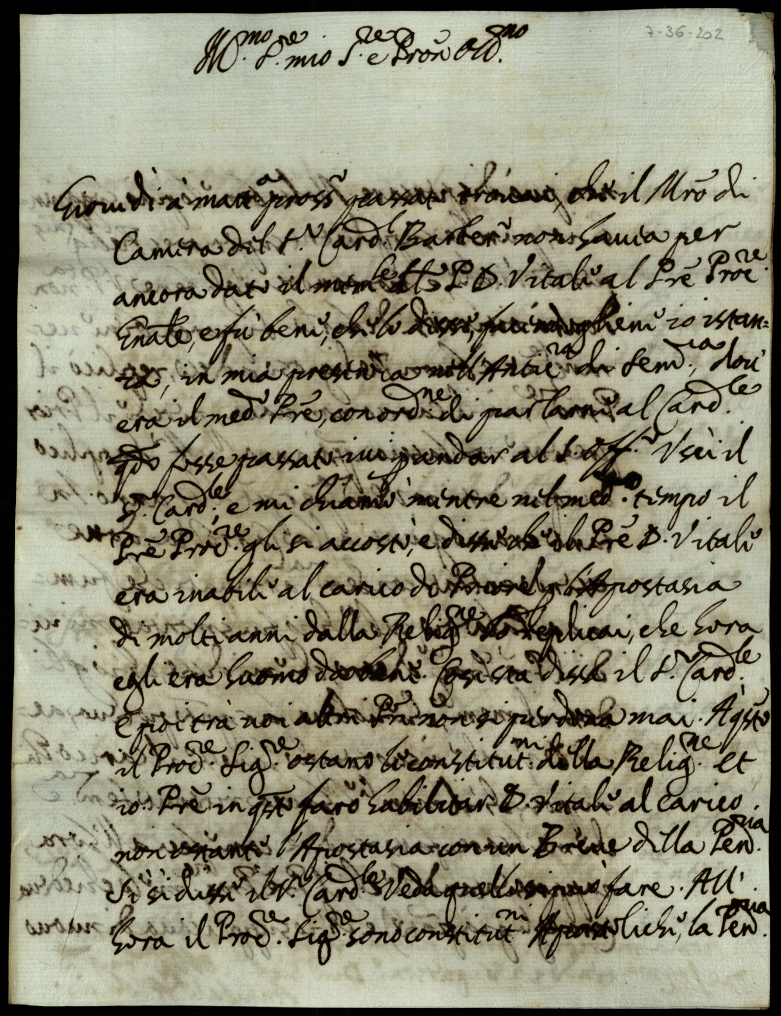 7-36-202
Ill.mo S.re mio S.re e Pron Col.mo
Giovedì matt.a pross.a passata che il Mro di
Camera del S.r Card.l Barber.o non havea per
ancora dato il mem.le P. D. Vitale al Pre Proc.re
Gnãle, e fù bene, che lo disse, io istan=
za, in mia presenza nell'Antic.ra di Sem.ia, dove
era il med.o Pre, con ord.ne di parlarne al Card.le
qdo fosse passato ivi p andar al S. Off.o Uscì il
S.r Card.le e mi chiamò mentre nel med.o tempo il
Pre Proc.re gli si accostò, e disse che il Pre D. Vitale
era inabile al carico di Apostasia
di molti anni dalla Relig.ne Io replicai, che hora
egli era huomo Così stà disse il S.r Card.le
e poi trà noi altri non si perdona mai. Aqsto
il Proc.re Sig.re ostano le constitut.ni della Relig.ne Et
io Pre in qsto farò habilitar D. Vitale al carico
non ostante l'Apostasia con un Breve della Pen.ria
Si si disse il S.r Card.le Veda quello si può fare. All'
hora il Proc.re Sig.re sono constitut.ni Apostoliche, la Pen.ria